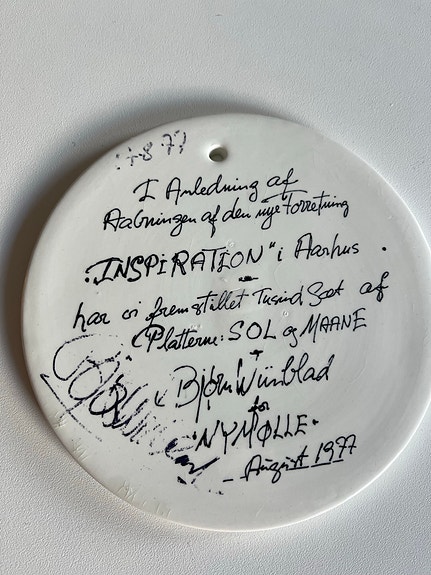 8 77
I Anledning af
Aabningen af den nye Forretning
"INSPIRATION" i Aarhus.
har vi fremstillet Tusind Sæt af
Platterne: SOL og MAANE
Bjørn Wiinblad
for
NYMØLLE.
August 1977